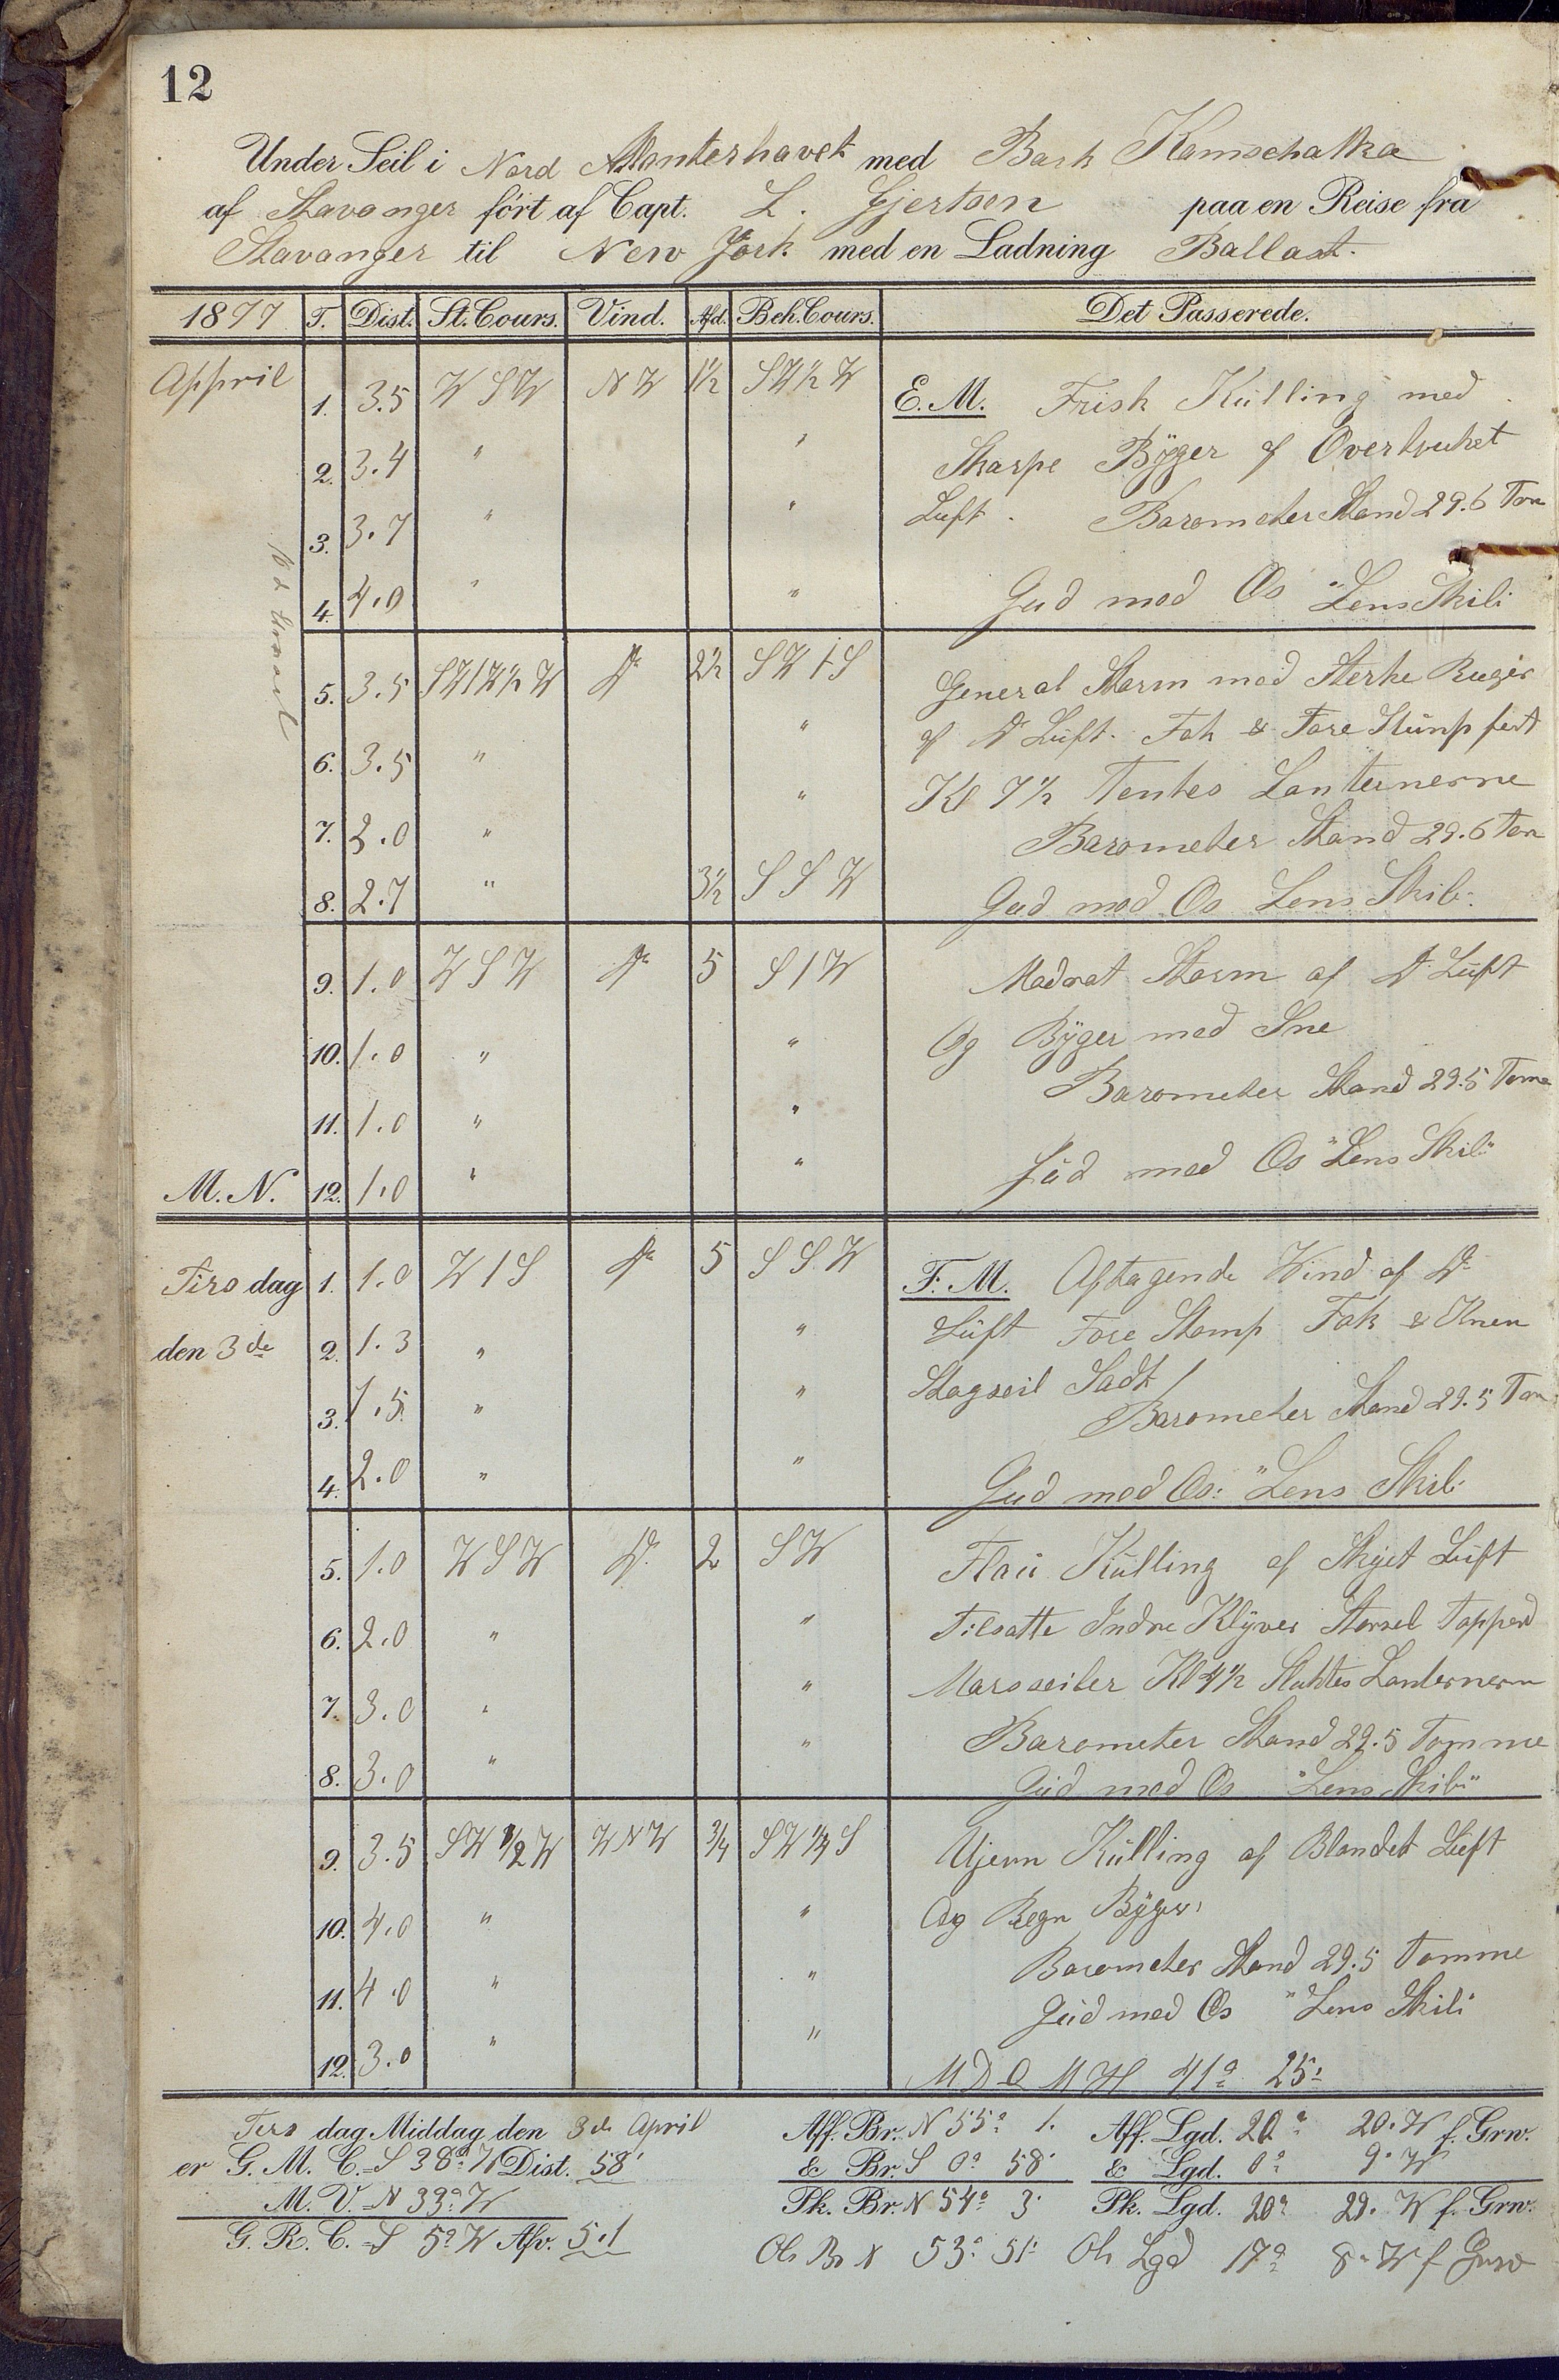 12
Under Seil i Nord Atlanterhavet med Bark Kamschatka
af Stavanger ført af Capt. L. Gjertsen paa en Reise fra
Stavanger til New York med en Ladning Ballast.
1877 T. Dist. St. Cours. Vind. Afd. Beh. Cours. Det Passerede.
Appril 1. 3.5 W S W N W 1½ S W ½ W E. M. Frisk Külling med
2. 3.4 " " Skarpe Byger af Overtrukket
3. 3.7 " " Luft. Barometer Stand 29.6 Tom
4. 4.0 " " Gud med Os "Lens Skib"
5. 3.5 Do 2½ S W t S General Storm med Sterke Buger
6. 3.5 " " af Do Lüft. Fok & Fore Stünp fast
7. 2.0 " " Kl 7½ Tentes Lanternerne
Barometer Stand 29.6 Tom
8. 2.7 " 3½ S S W Gud med Os Lens Skib.
9. 1.0 W S W Do 5 S t W Madrat Storm af Do Lüft
10. 1.0 " " Og Byger med Sne
11. 1.0 " " Barometer Stand 29.5 Tome
M. N. 12. 1.0 " " Güd med Os "Lens Skib"
Tirs dag 1. 1.0 W t S Do 5 S S W F. M. Aftagende Wind af Do
den 3de 2. 1.3 " " Lüft Fore Stomp Fok &
3. 1.5 " " Stagseil Sadt
Barometer Stand 29.5 Tom
4. 2.0 " " Gud med Os: "Lens Skib.
5. 1.0 W S W Do 2 S W Flau Külling af Skyet Lüft
6. 2.0 " " Tilsatte Indre Klyver Storsel
7. 3.0 " " Marsseiler Kl 4½ Sluktes Lanternern
Barometer Stand 29.5 Tomme
8. 3.0 " " Güd med Os "Lens Skib"
9. 3.5 S W ½ W W N W ¾ S W ¼ S Ujevn Külling af Blandet Lüft
10. 4.0 " " Og Regn Byger,
11. 4.0 " " Barometer Stand 29.5 Tomme
Güd med Os "Lens Skib
12. 3.0 " " M D O M H 41° 25'
Tirs dag Middag den 3de April Aff. Br. N 55° 1. Aff. Lgd. 20° 20. W f. Grw.
er G. M. C. = S 38° W Dist. 58' & Br. S 0° 58' & Lgd. 0° 9' W
M. V. = N 33° W Pk. Br. N 54° 3' Pk. Lgd. 20° 29. W f. Grw.
G. R. C. = S 5° W Afv. 5.1 Ob Br N 53° 51' Ob Lgd 17° 8' W f Grw